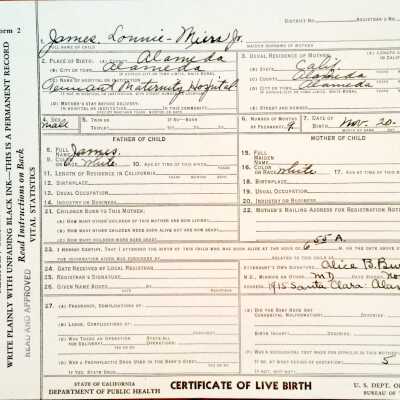 Form 2
DISTRICT NO.
REGISTRAR'S NO.
James Lonnie Miers Jr.
1. FULL NAME OF CHILD
MAIDEN SURNAME OF MOTHER
2. PLACE OF BIRTH: Alameda
3. USUAL RESIDENCE OF MOTHER:
(A) COUNTY Alameda
(A) STATE Calif.
(B) CITY OR TOWN
(B) COUNTY Alameda
(C) CITY OR TOWN Alameda
Maternity Hospital
(D) MOTHER'S STAY BEFORE DELIVERY:
IN HOSPITAL OR INSTITUTION
IN COMMUNITY
(D) STREET AND NUMBER
4. SEX: Male
5. TWIN OR TRIPLET?
IF SO—BORN
6. NUMBER OF MONTHS OF PREGNANCY 9
7. DATE OF BIRTH Nov. 20.
FATHER OF CHILD
MOTHER OF CHILD
8. FULL NAME James
15. FULL MAIDEN NAME
9. COLOR OR RACE White
10. AGE AT TIME OF THIS BIRTH
16. COLOR OR RACE white
17. AGE AT TIME OF THIS
11. LENGTH OF RESIDENCE IN CALIFORNIA
18. BIRTHPLACE
12. BIRTHPLACE
19. USUAL OCCUPATION
13. USUAL OCCUPATION
20. INDUSTRY OR BUSINESS
14. INDUSTRY OR BUSINESS
21. CHILDREN BORN TO THIS MOTHER:
22. MOTHER'S MAILING ADDRESS FOR REGISTRATION NOTICE
(A) HOW MANY OTHER CHILDREN OF THIS MOTHER ARE NOW LIVING?
(B) HOW MANY OTHER CHILDREN WERE BORN ALIVE BUT ARE NOW DEAD?
(C) HOW MANY CHILDREN WERE BORN DEAD?
23. I HEREBY CERTIFY, THAT I ATTENDED THE BIRTH OF THIS CHILD WHO WAS BORN ALIVE AT THE HOUR OF 655 A. M. ON THE DATE ABOVE
THE INFORMATION GIVEN WAS FURNISHED BY
24. DATE RECEIVED BY LOCAL REGISTRAR
ATTENDANT'S OWN SIGNATURE Alice B.
25. REGISTRAR'S SIGNATURE
M.D., MIDWIFE OR OTHER MD DATE
26. GIVEN NAME ADDED
DATE REGISTRAR
ADDRESS 1915 Santa Clara
27. (A) PREGNANCY, COMPLICATIONS OF
(B) LABOR, COMPLICATIONS OF
(C) WAS THERE AN OPERATION FOR DELIVERY?
STATE ALL OPERATIONS
(D) WAS A PROPHYLACTIC DRUG USED IN THE BABY'S EYES?
DID THE BABY HAVE ANY
CONGENITAL MALFORMATION?
BIRTH INJURY?
5
WRITE PLAINLY WITH UNFADING BLACK INK—THIS IS A PERMANENT RECORD
Read Instructions on Back
VITAL STATISTICS
READ AND APPROVED
STATE OF CALIFORNIA
DEPARTMENT OF PUBLIC HEALTH
CERTIFICATE OF LIVE BIRTH
U. S. DEPT. O
BUREAU OF